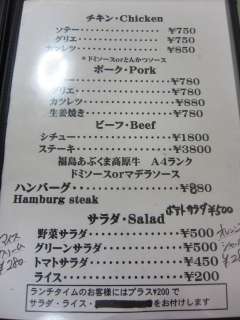 チキン・Chicken
ソテー ¥750
グリエ ¥750
カツレツ ¥850
*ドミソースorとんかつソース
ポーク・Pork
¥780
グリエ ¥780
カツレツ ¥880
生姜焼き ¥780
ビーフ・Beef
シチュー ¥1800
ステーキ ¥3800
福島あぶくま高原牛 A4ランク
ドミソースorマデラソース
ハンバーグ ¥880
Hamburg steak
サラダ・Salad
ポテトサラダ ¥500
野菜サラダ ¥500
グリーンサラダ ¥500
トマトサラダ ¥450
ライス ¥200
アイス
280
ランチタイムのお客様にはプラス¥200で
サラダ・ライス・ をお付けします